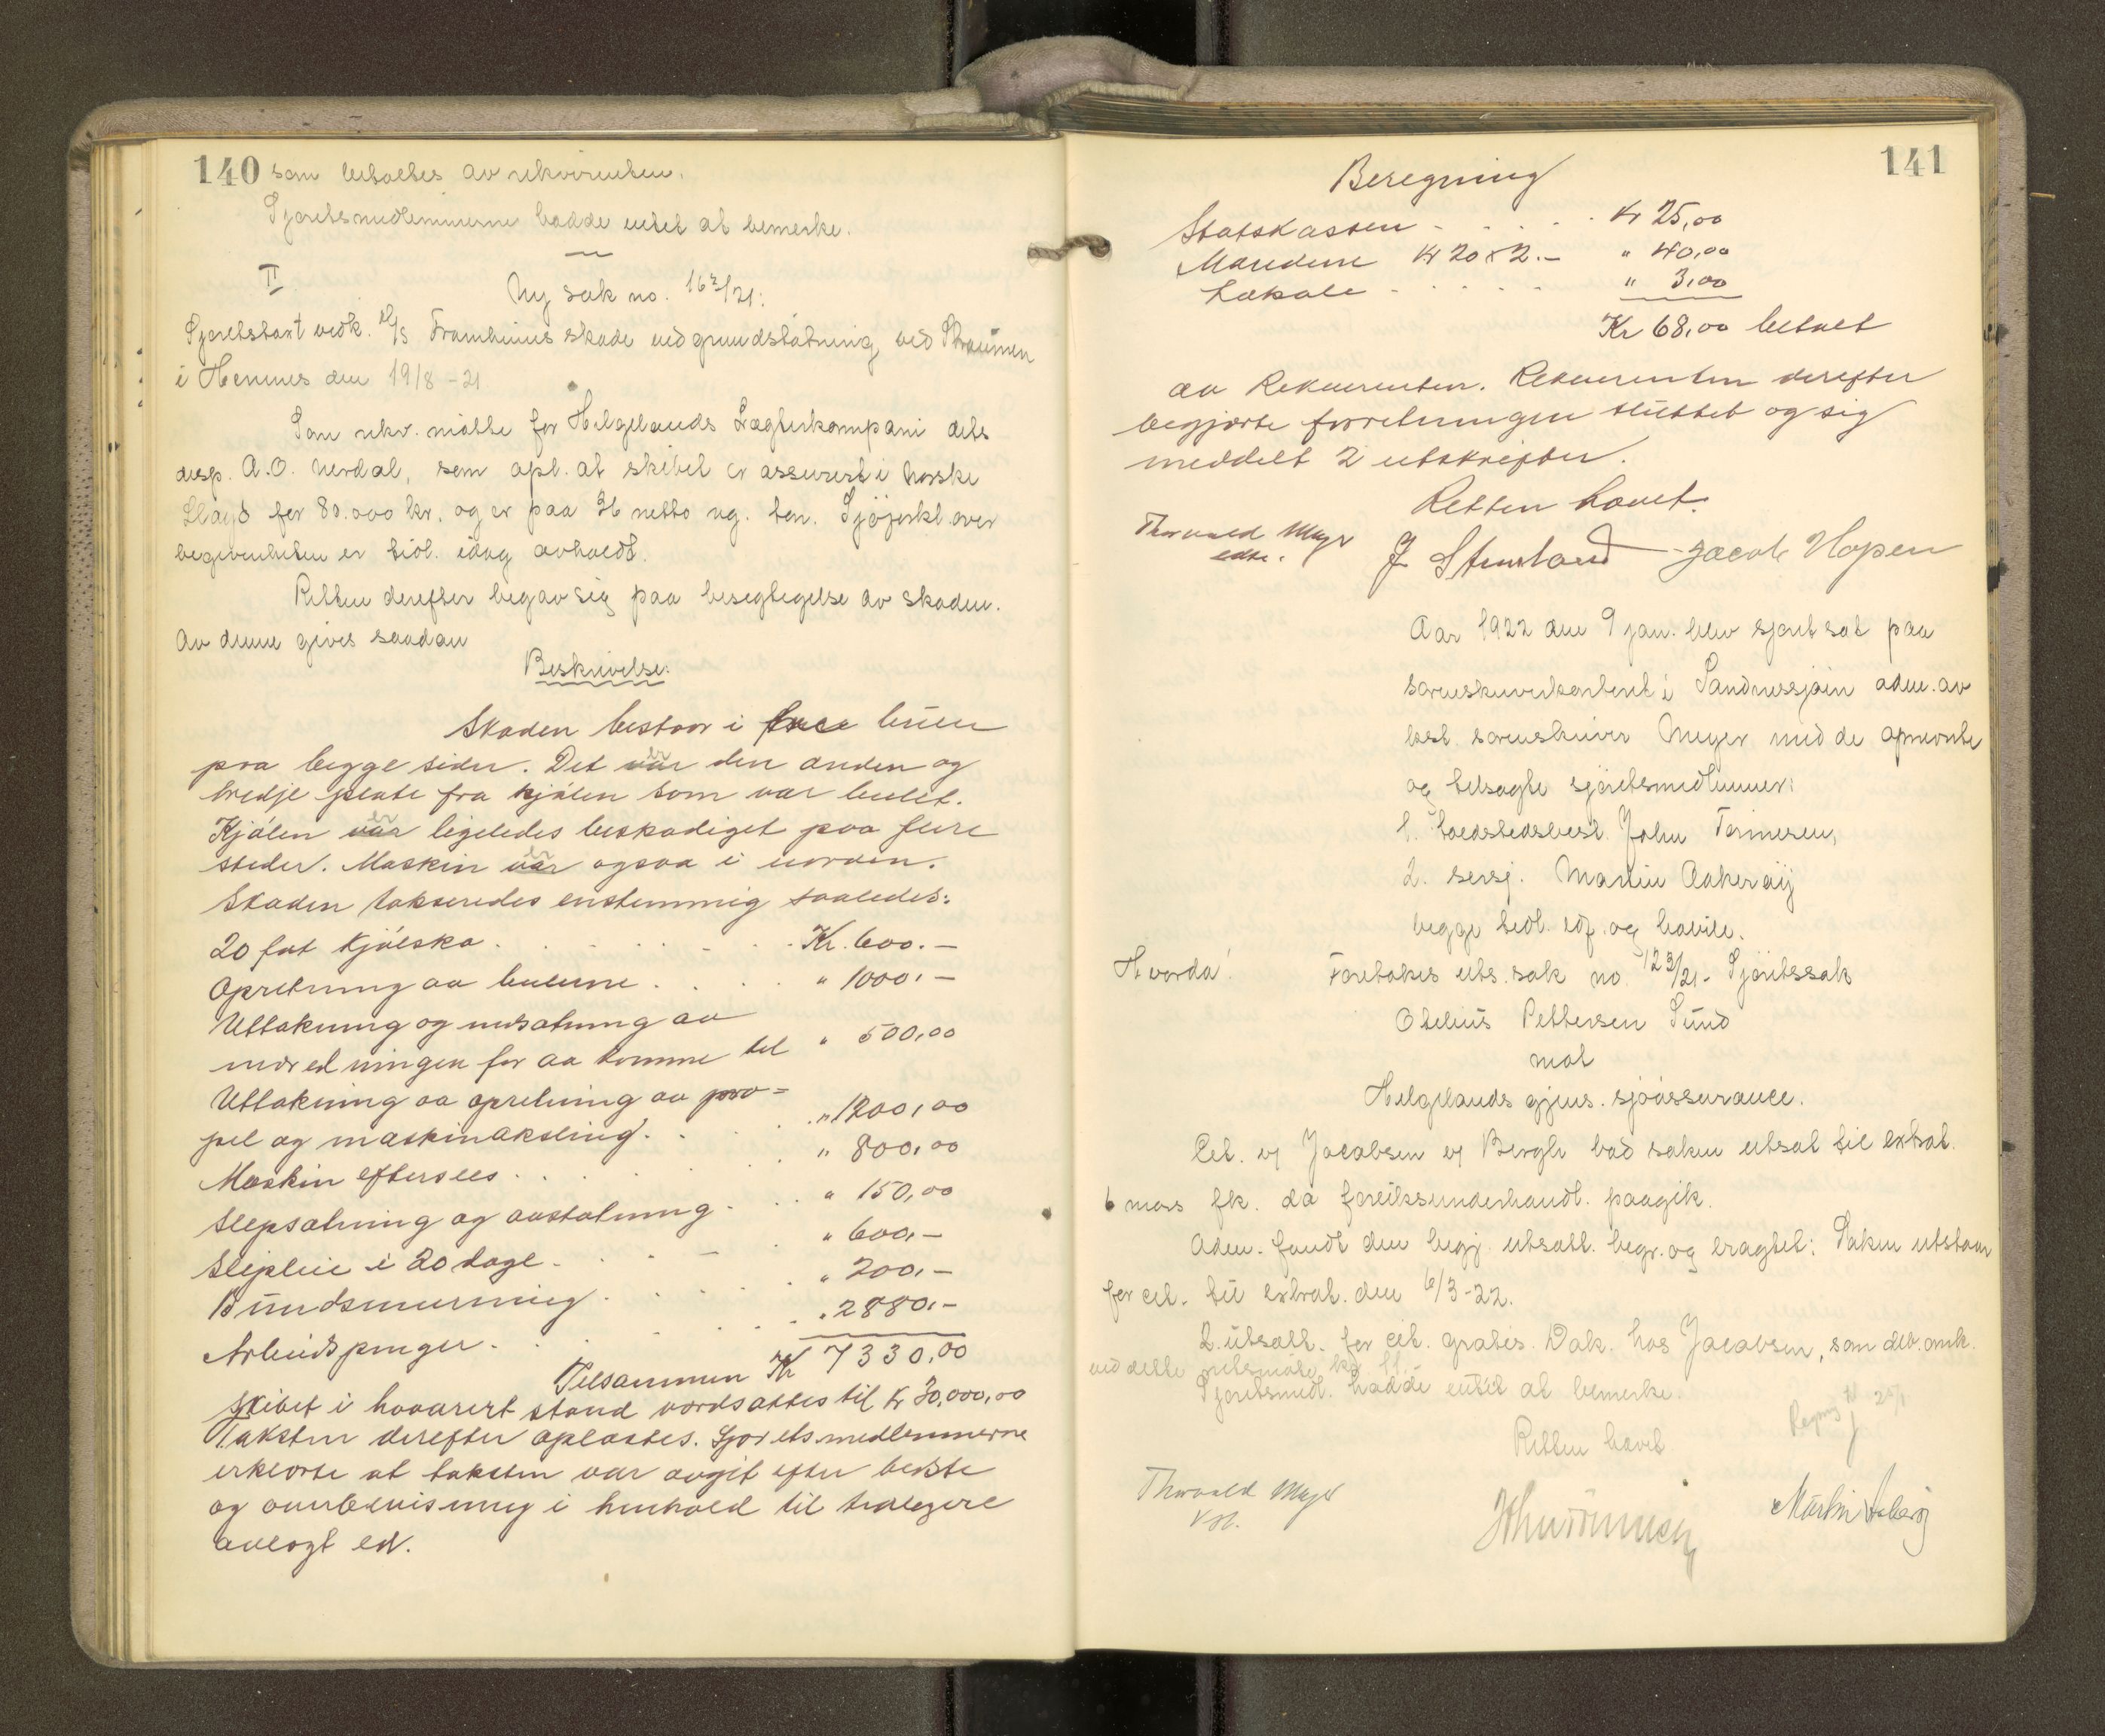 140 som betaltes av rekvirenten.
Sjøretsmedlemmerne hadde intet at bemerke.
II
Ny sak no. 163/21:
Sjøretstaxt vedk. D/S Framheims skade ved grundstøtning ved Straumen
i Hemnes den 19/8 - 21
Som rekv. møtte for Helgelands Lægterkompani dets
desp. A.O. Nerdal, som opl. at skibet er assurert i Norske
Lloyd for 80.000 kr. og er paa 36 netto reg. ton. Sjøforkl. over
begivenheten er tidl. idag avholdt.
Retten derefter begav sig paa besigtigelse av skaden.
Av denne gives saadan
Beskrivelse:
Skaden bestaar i buler
paa begge sider. Det var er den anden og
tredje plate fra kjølen som var bulet.
Kjølen var er ligeledes beskadiget paa flere
steder. Maskin var er ogsaa i uorden.
Skaden takseredes enstemmig saaledes:
20 fot kjølsko . . . . . Kr. 600.-
Opretning av bulerne . . . . " 1000.-
Uttakning og indsætning av
indredningen for aa komme til " 500,00
Uttakning av opretning av pro-
pel og maskinaksling . . . " 1200,00
Maskin eftersees . . . . " 800,00
Slepsætning og avsætning . . . " 150,00
Slipleie i 20 dage . . . " 600,-
Bundsmurning . . . . " 200,-
Arbeidspenger . . . . . " 2880,-
Tilsammen Kr 7330,00
Skibet i havarert stand værdsattes til Kr 30,000,00
Taksten derefter oplæstes. Sjøretsmedlemmerne
erklærte at taksten var avgit efter beste
og overbevisning i henhold til tidligere
avlagt ed.
141
Beregning
Statskassen - . . . . Kr 25,00
Mændene Kr 20 x 2.- " 40,00
Lokale - . . . . " 3,00
Kr 68,00 betalt
av Rekvirenten. Rekvirenten derefter
begjærte forretningen sluttet og sig
meddelt 2 utskrifter.
Retten hævet.
Thorvald Meyer
edsv.
J Stensland - Jacob Hopen
Aar 1922 den 9 jan. blev sjøret sat paa
sorenskriverkontoret i Sandnessjøen adm. av
kst. sorenskriver Meyer med de opnævnte
og tilsagte sjøretsmedlemmer:
1. handelsbest. John Tønnesen,
2. sersj. Martin Aakerøy
begge tidl. edf. og habile.
Hvorda! Foretokes uts. sak no 123/21 - Sjøretssak
Otelius Pettersen Sund
mot
Helgelands gjens. sjøassurance.
Cit. v/ Jacobsen v/ Bergh bad saken utsat til extrat.
6 mars fk. da forliksunderhandl. paagik.
Adm. fandt den begj. utsætt. begr. og eragtet: Saken utstaar
for cit. til extrat. den 6/3-22.
2. utsætt. for cit. gratis. Dok. hos Jacobsen, som
ved dette retsmøte
Sjøretsmedl. hadde intet at bemerke.
Retten hævet
Thorvald Meyer
John Tønnesen
Martin Aakerøy